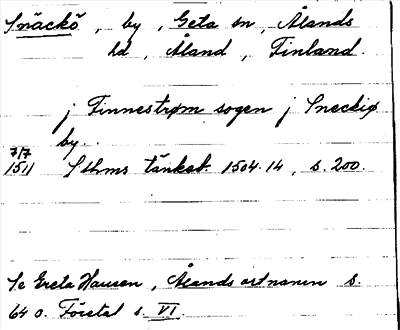 Snäckö, by, Geta sn, Ålands
hd, Åland, Finland.
j Finnestrøm sogen j Sneckiø
by.
7/7
1511 Sthms tänkeb. 1504-14, s. 200.
Se Greta Hausen, Ålands ortnamn s.
64 o. Företal s. VI.